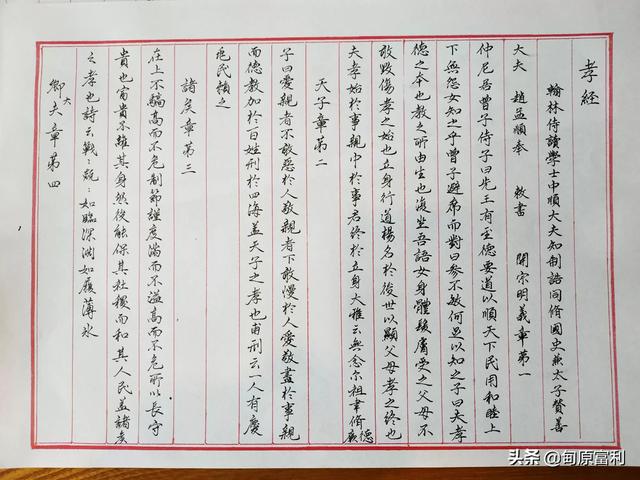 孝经
翰林侍讀學士中順大夫知制誥同脩國史兼太子贊善
大夫 趙孟順奉 敕書 開宗明義章第一
仲尼居曾子侍子曰先王有至德要道以順天下民用和睦上
下無怨女知之乎曾子避席而對曰参不敏何足以知之子曰夫孝
德之本也教之所由生也復坐吾語女身體髮膚受之父母不
敢毀傷孝之始也立身行道揚名於後世以顯父母孝之终也
夫孝始於事親中於事君终於立身大雅云無念尔祖聿脩厥德
天子章第二
子曰愛親者不敢惡於人敬親者不敢慢於人愛敬盡於事親
而德教加於百姓刑於四海盖天子之孝也甫刑云一人有慶
兆民頼之
諸矦章第三
在上不驕高而不危制節謹度滿而不溢高而不危所以長守
貴也富貴不離其身然後能保其社稷而和其人民盖諸矦
之孝也詩云戰:兢:如臨深渊如履薄冰
卿大夫章第四
头条 @甸原富利